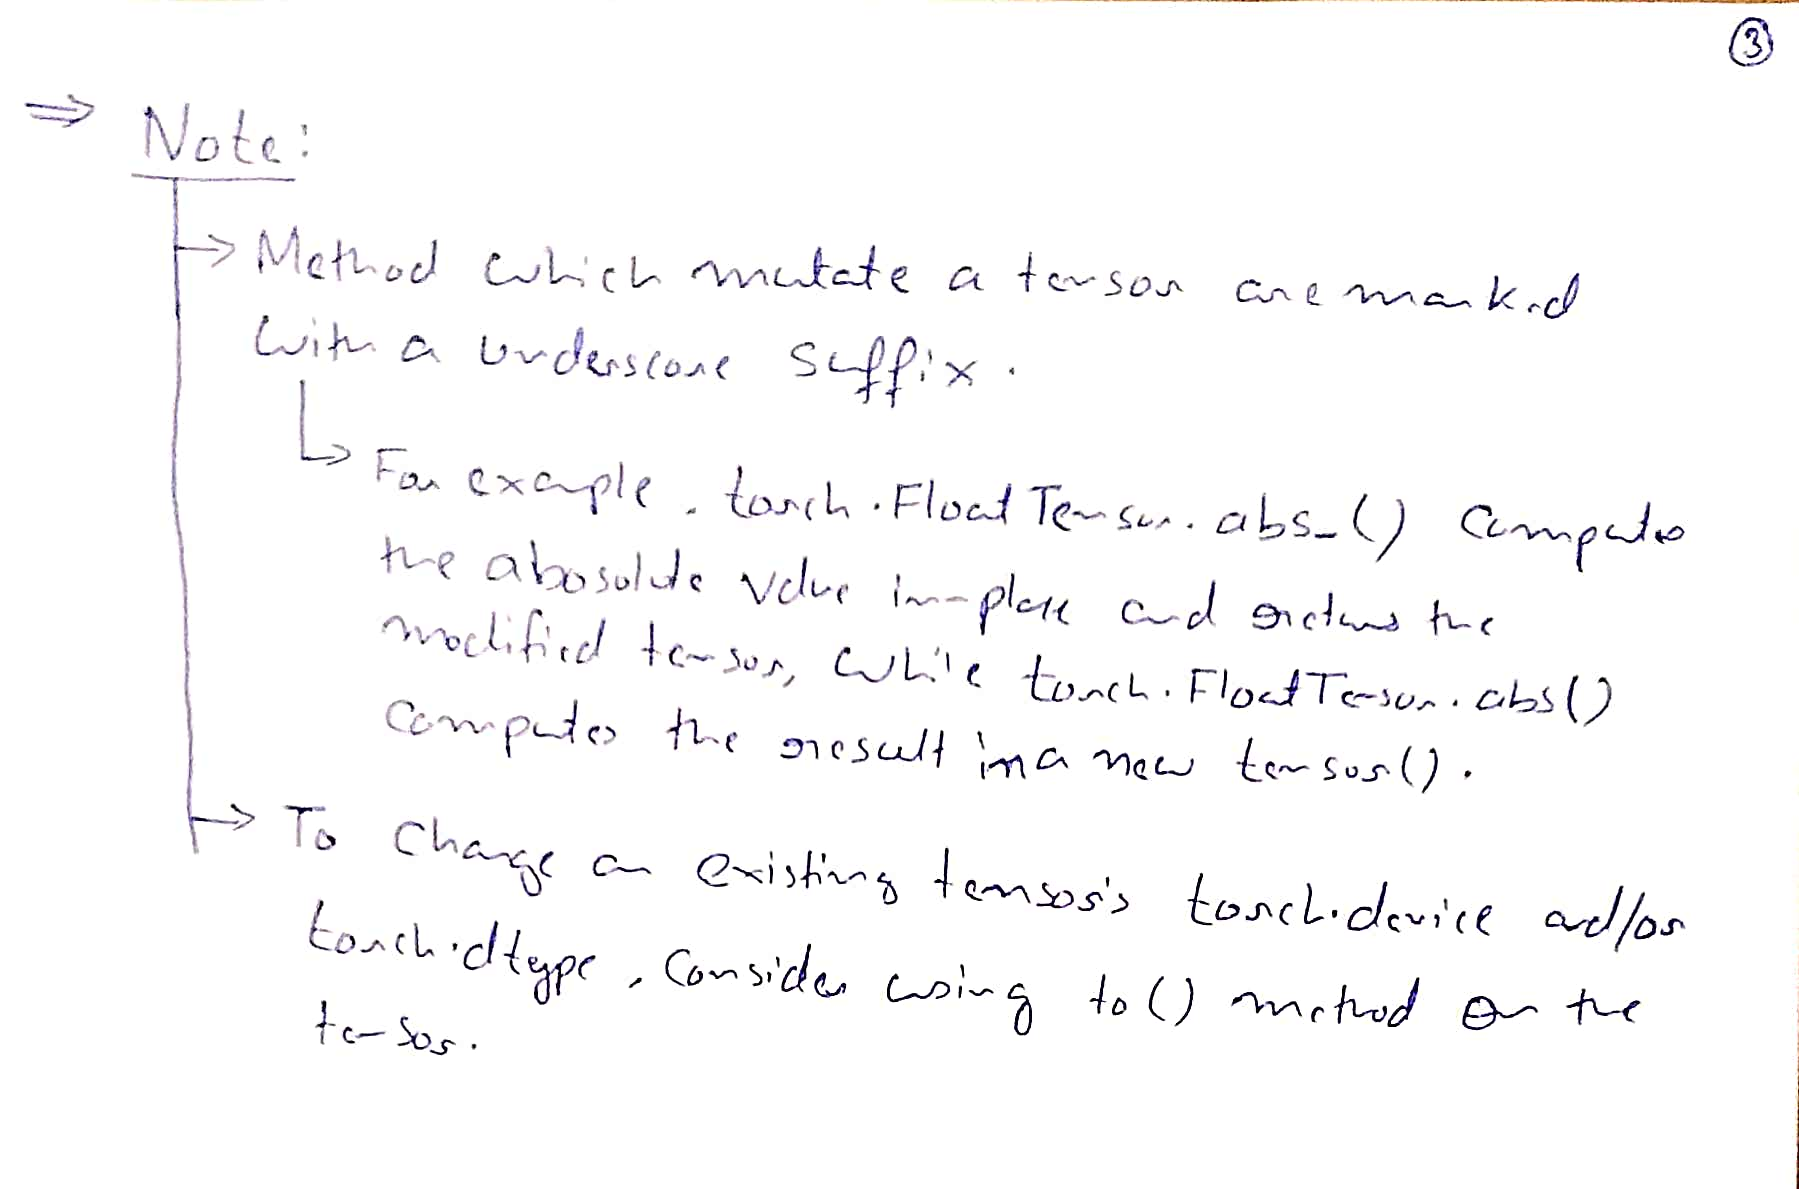 ③
⇒ Note:
→ Method which mutate a tensor are marked
with a underscore suffix.
↳ For example, torch.FloatTensor.abs_() computes
the abosolute value in-place and returns the
modified tensor, while torch.FloatTensor.abs()
computes the result in a new tensor().
→ To change an existing tensor's torch.device and/or
torch.dtype, consider using to() method on the
tensor.